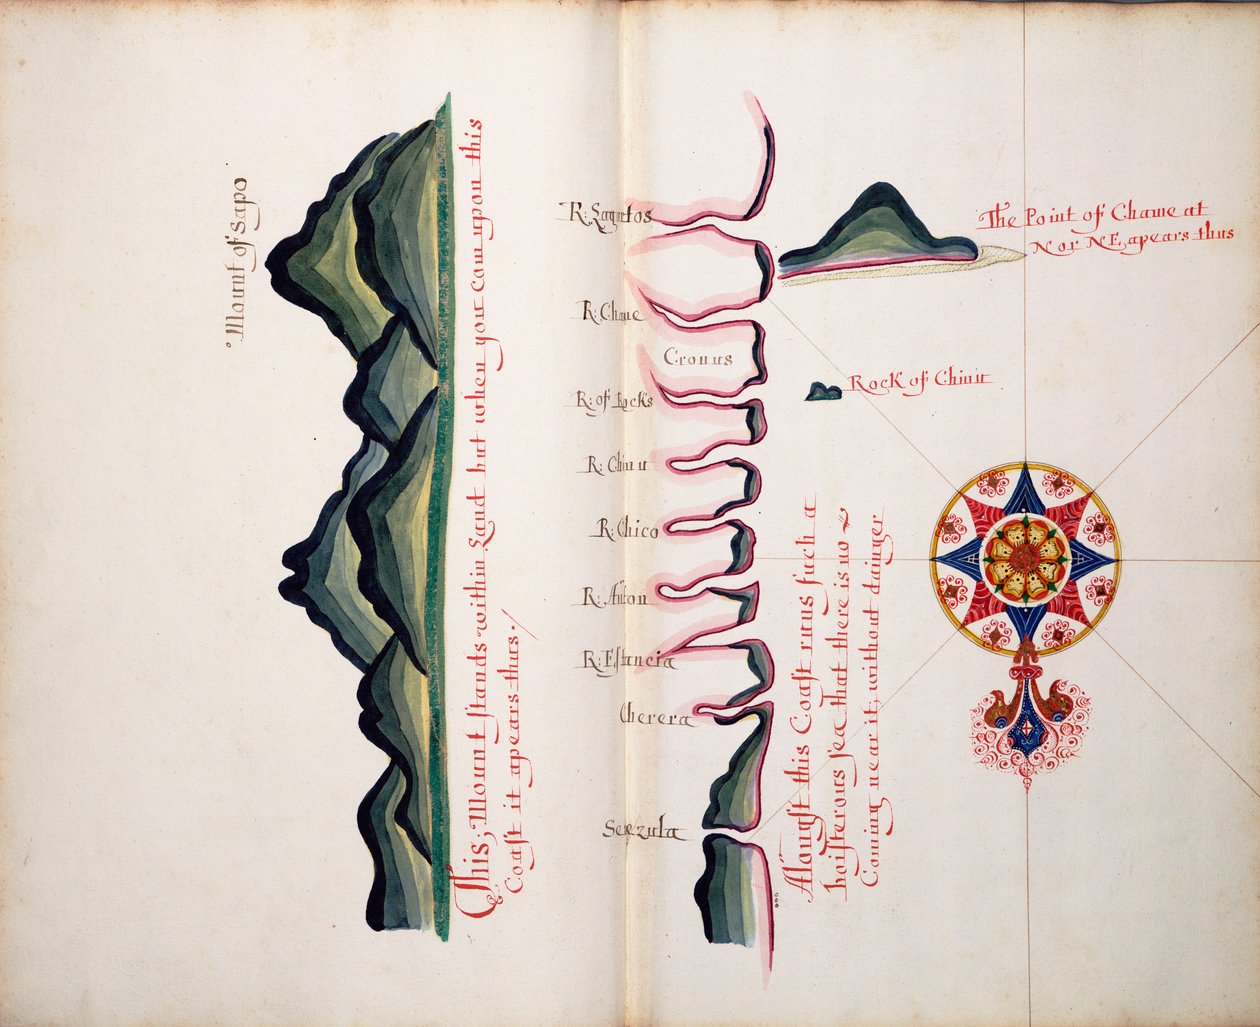 Mount of Sapo
This; Mount stands within Land but when you com upon this
Coast it apears thus.
R: Sagutos
R: Chame
Cronus
R: of Rocks
R: Chiru
R: Chico
R: Anton
R: Estancia
Cherera
Serezula
The Point of Chame at
N or NE, apears thus
Rock of Chiru
Alongst this Coast runs such a
boisterous sea that there is no
Coming near it, without dainger